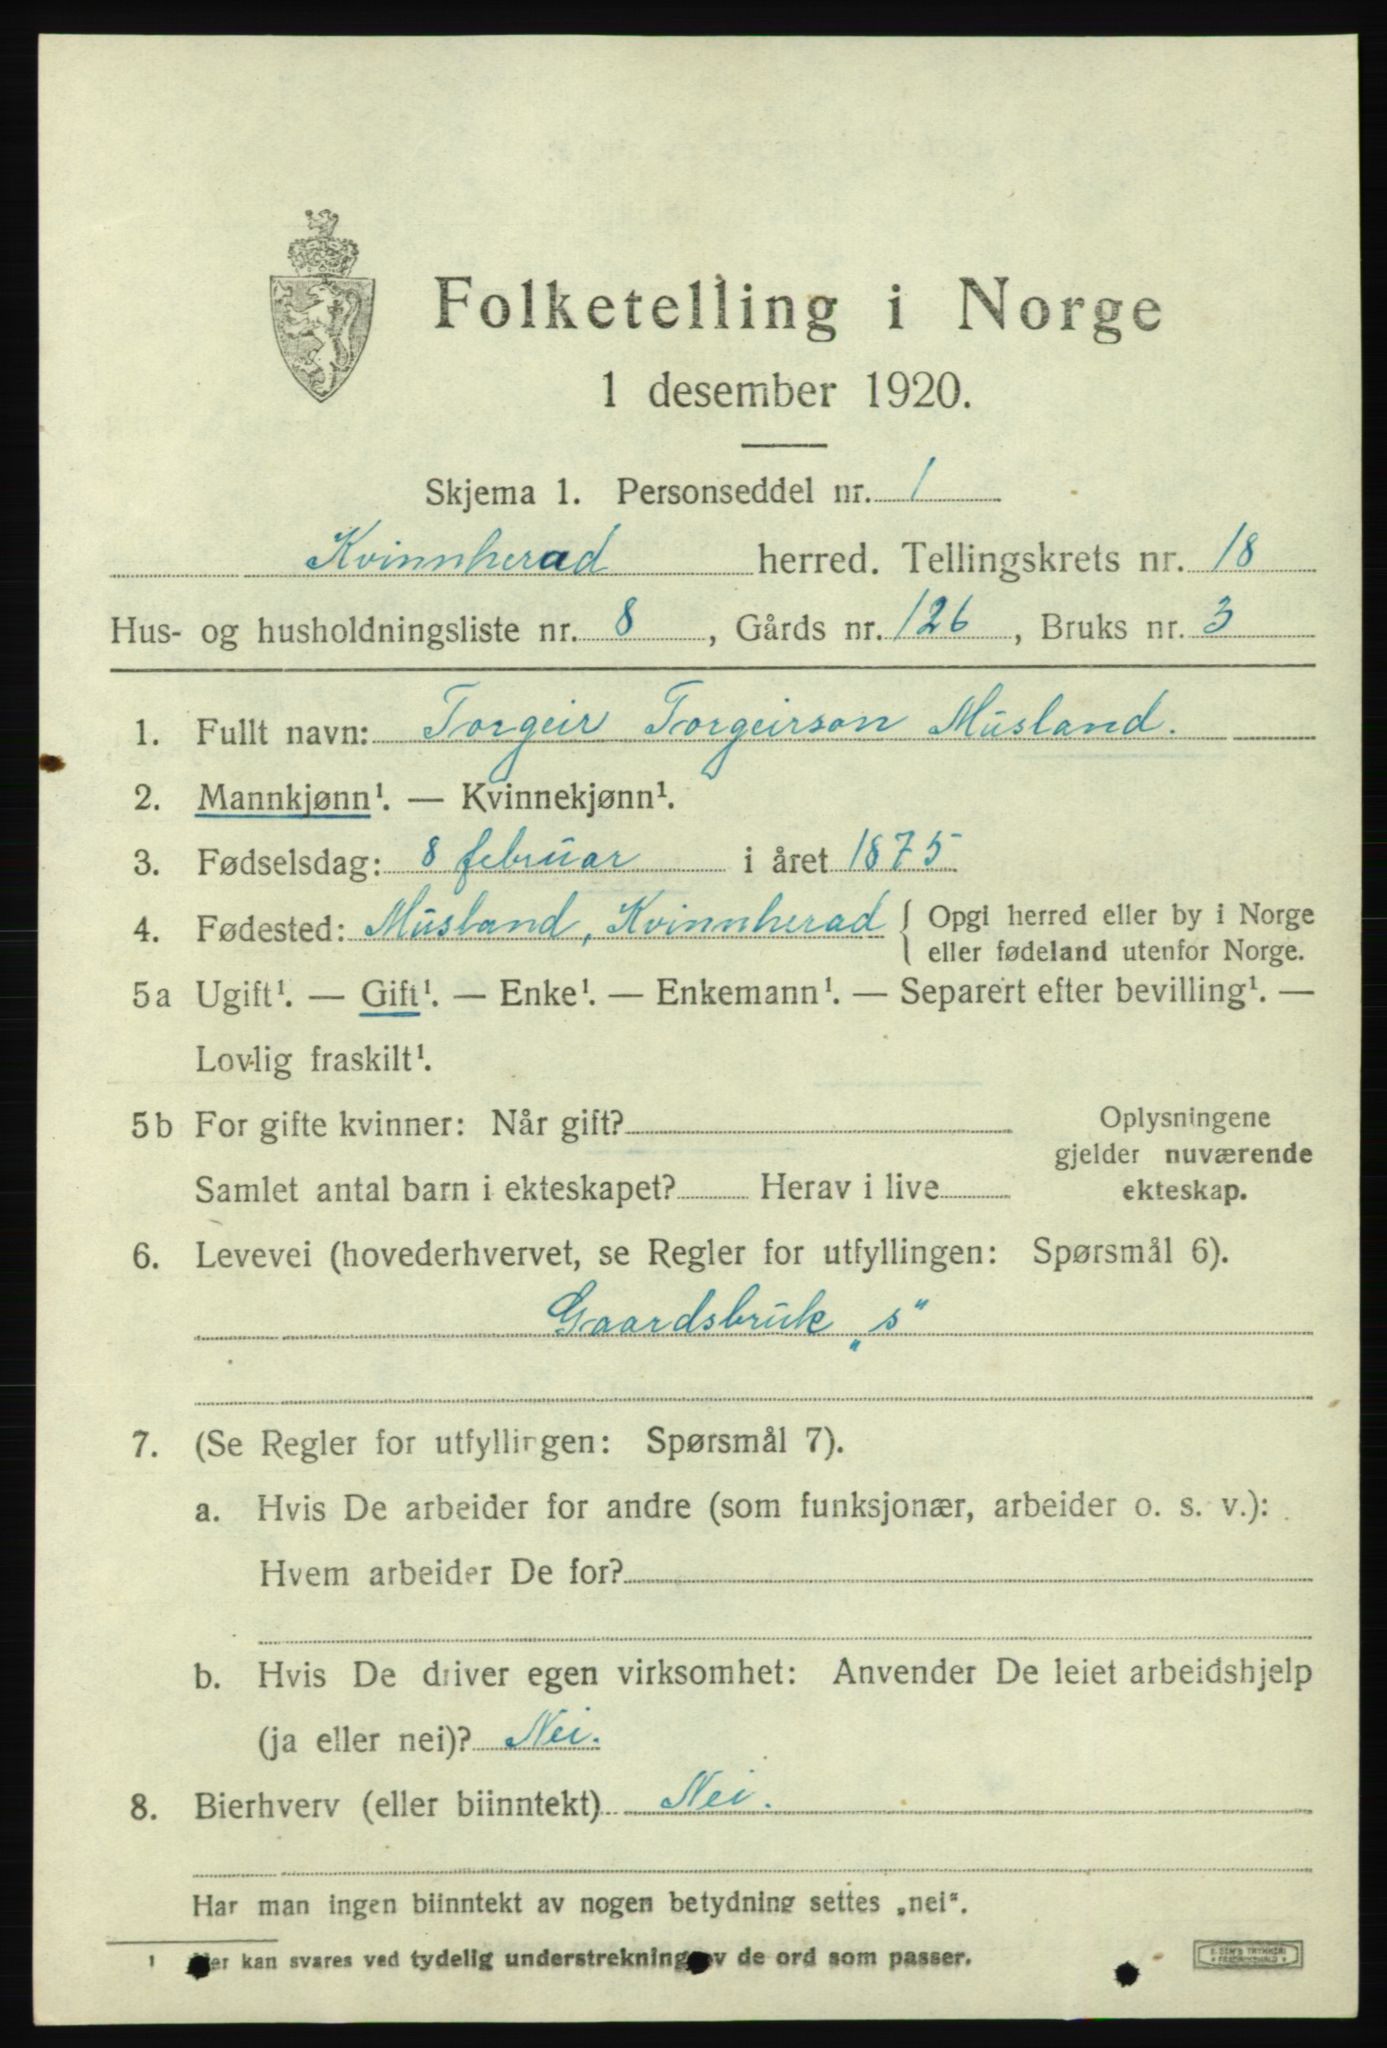 Folketelling i Norge
1 desember 1920.
Skjema 1. Personseddel nr. 1
Kvinnherad herred. Tellingskrets nr. 18
Hus- og husholdningsliste nr. 8, Gårds nr. 126, Bruks nr. 3
1. Fullt navn: Torgeir Torgeirson Musland.
2. Mannkjønn¹. — Kvinnekjønn¹.
3. Fødselsdag: 8 februar i året 1875
4. Fødested: Musland, Kvinnherad { Opgi herred eller by i Norge
eller fødeland utenfor Norge.
5a Ugift¹. — Gift¹. — Enke¹. — Enkemann¹. — Separert efter bevilling¹. —
Lovlig fraskilt¹.
5b For gifte kvinner: Når gift?
Samlet antal barn i ekteskapet? Herav i live
Oplysningene
gjelder nuværende
ekteskap.
6. Levevei (hovederhvervet, se Regler for utfyllingen: Spørsmål 6).
Gaardsbruk „s“
7. (Se Regler for utfyllingen: Spørsmål 7).
a. Hvis De arbeider for andre (som funksjonær, arbeider o. s. v.):
Hvem arbeider De for?
b. Hvis De driver egen virksomhet: Anvender De leiet arbeidshjelp
(ja eller nei)? Nei.
8. Bierhverv (eller biinntekt) Nei.
Har man ingen biinntekt av nogen betydning settes „nei“.
¹ Her kan svares ved tydelig understrekning av de ord som passer.